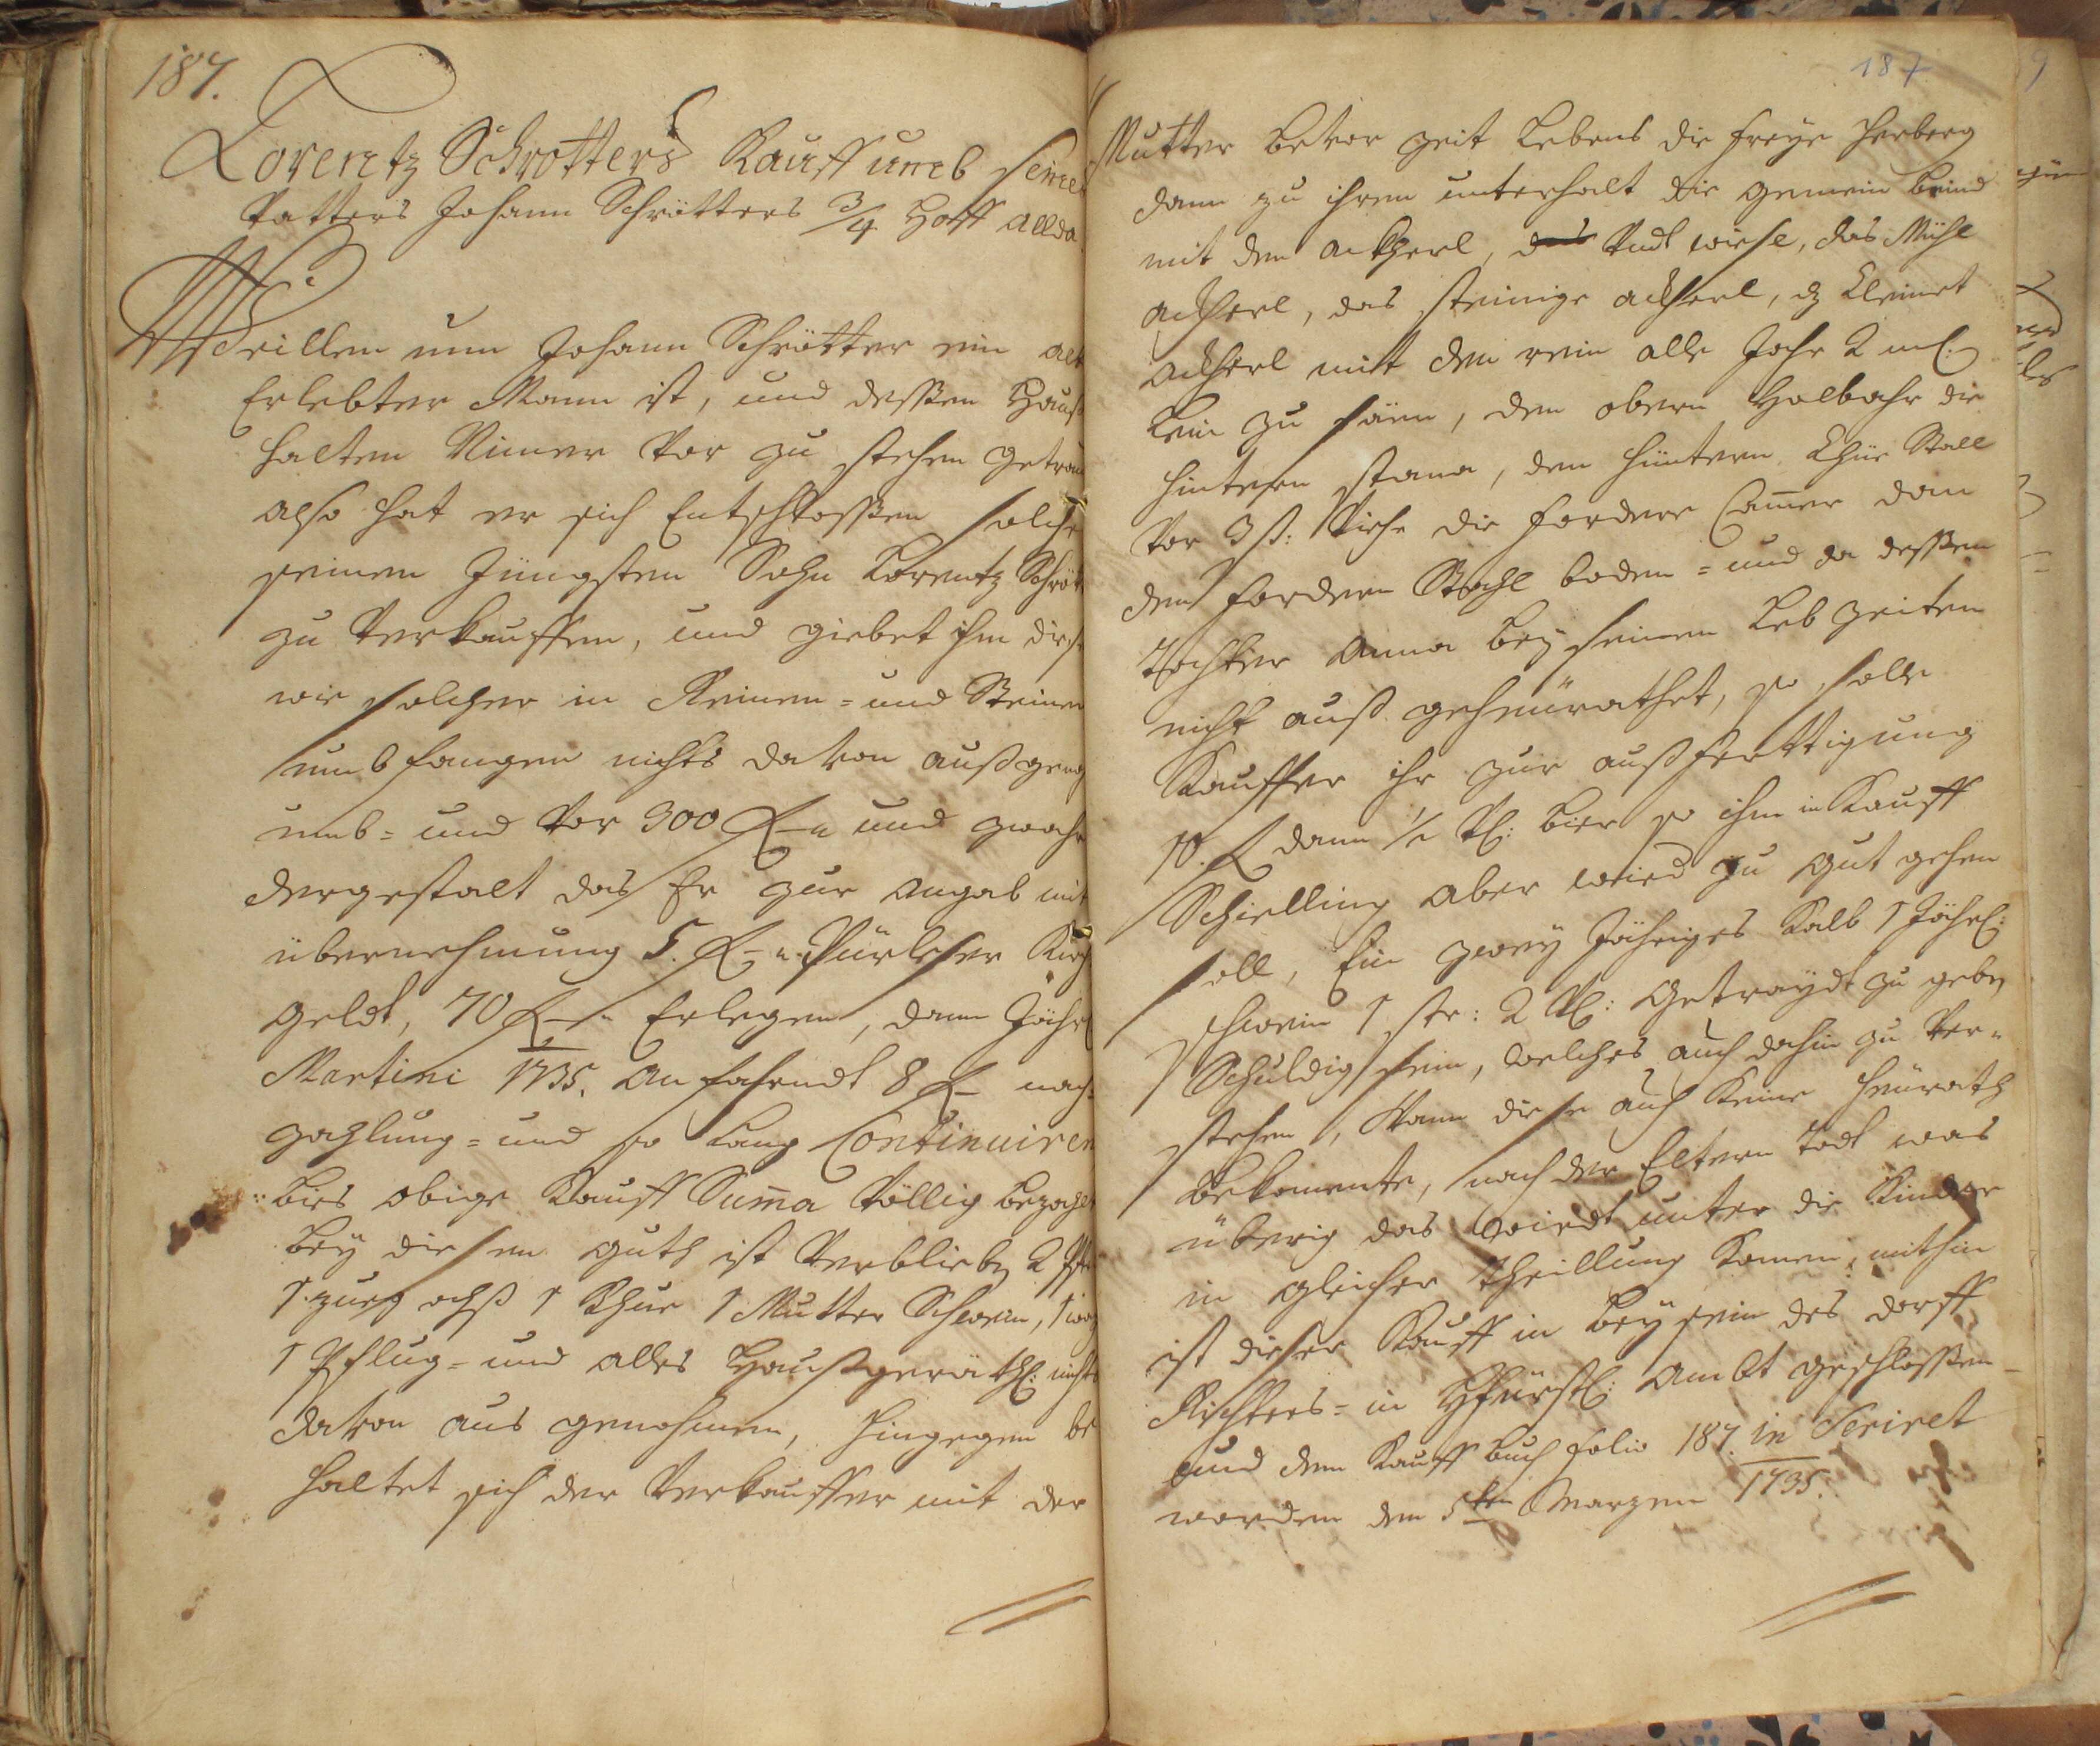 187.
Lorentz Schrotters Kauff umb seines
Vatters Johann Schrötters 3/4 Hoff allda
Weillen nun Johann Schrötter ein alt
Erlebter Mann ist, und dessen Hauß
halten Nimer Vor zu stehen getrau
also hat er sich Entschlossen solche
seinen Jüngsten Sohn Lorentz Schröt
zu Verkauffen, und giebet ihm diese
wie solcher in Reinen = und Steinen
umbfangen nichts davon außgen
umb = und Vor 300 und zwahr
dergestalt das Er zur angab mit
übernehmung 5. Pürleser Kirch
geldt, 70 Erlegen, dann Jährl
Martini 1735. anfahendt 8 nach=
zahlung = und so lang Continuiren
bies obige Kauff Suma Völlig bezahlt
bey diesem guth ist Verblieben 2
1 zueg ochß 1 Khue 1 Mutter Schwein, 1
1 Pflug = und alles Haußgeräth: nichts
davon aus genohmen, hingegen be
haltet sich der Verkauffer mit der
187
Mutter bevor zeit Lebens die freye Herberg
dann zu ihren unterhalt die gemein beind
mit den ackherl, das wiesl, das Mühl
ackherl, das steinige ackherl, dz Kleinet
ackherl mit den rein alle Jahr 2
Lein zu säen, den obern Halbahr die
hintern, den hintern Khüe Stall
Vor 3 st: Viehe die fordere Camer dan
den fordern Stahl boden = und da dessen
Tochter Anna bey seinen Leb zeiten
nicht auß geheurathet, so solle
Kauffer ihr zur außferttigung
10. dann 1/2 Vl: bier so ihm in Kauff
Schielling aber wied zu gut gehen
soll, Ein zwey Jähriges Kalb 1 Jährl:
schwein 1 str: 2 Vl: getraydt zu geben
Schuldig sein, welches auch dahin zu Ver=
stehen, Wann diese auch Keine heurath
bekomente, nach der Eltern Todt was
überig das wiedt unter die Kinder
in gleicher Theillung Komen, mithin
ist dieser Kauff in beysein des dorff
Richters = in Hfürstl: ambt geschlossen
und dem Kauff buch folio 187. in Seriret
worden den 5ten Marzen 1735.